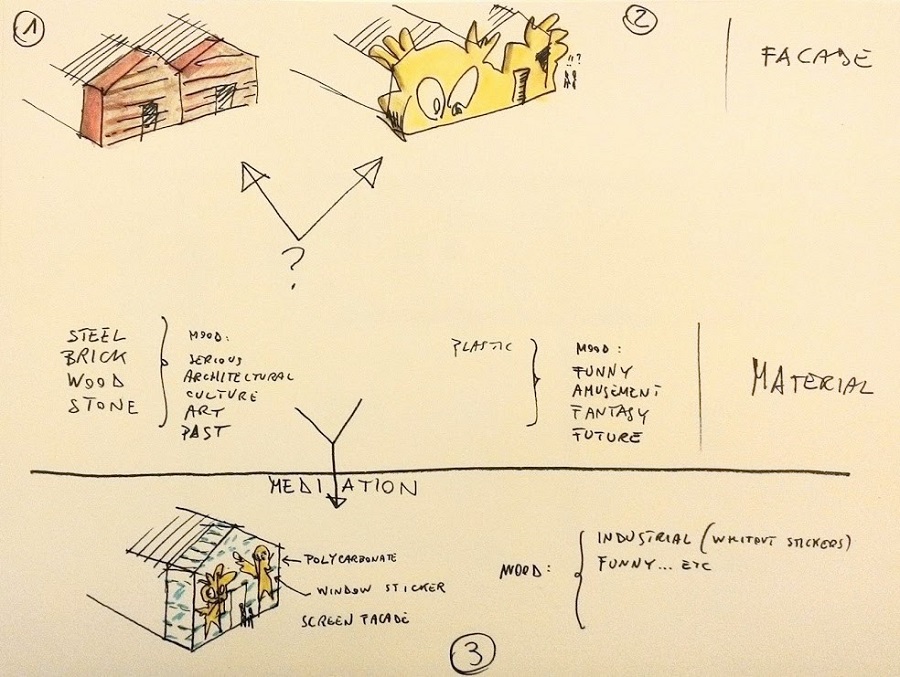 1
2
!!?
FACADE
?
STEEL
BRICK
WOOD
STONE
MOOD:
SERIOUS
ARCHITECTURAL
CULTURE
ART
PAST
PLASTIC
MOOD:
FUNNY
AMUSEMENT
FANTASY
FUTURE
MATERIAL
MEDIATION
POLYCARBONATE
WINDOW STICKER
SCREEN FACADE
MOOD:
INDUSTRIAL (WHITOUT STICKERS)
FUNNY... ETC
3